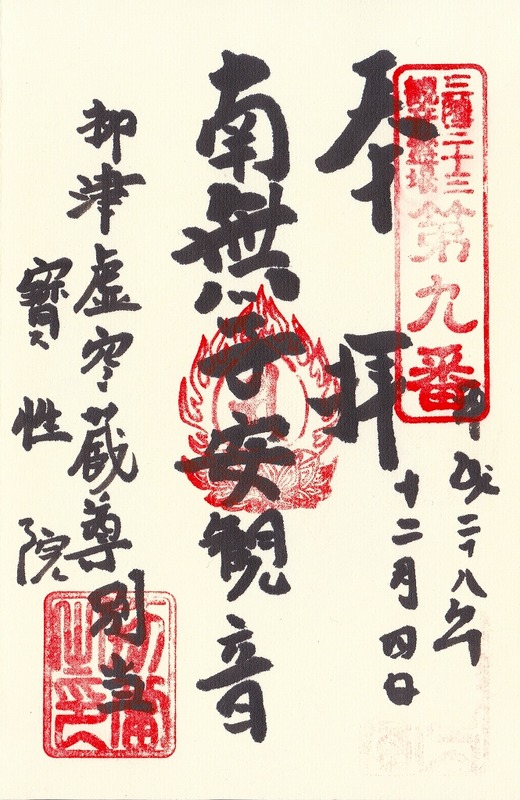 奉拝
三國三十三
観世音霊場
第九番
平成二十八年
十二月四日
南無子安観音
御津虚空蔵尊別当
寶性院